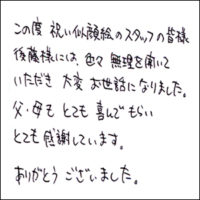 この度 祝い似顔絵のスタッフの皆様
後藤様には、色々無理を聞いて
いただき 大変 お世話になりました。
父・母も とても 喜んでもらい
とても 感謝しています。
ありがとう ございました。